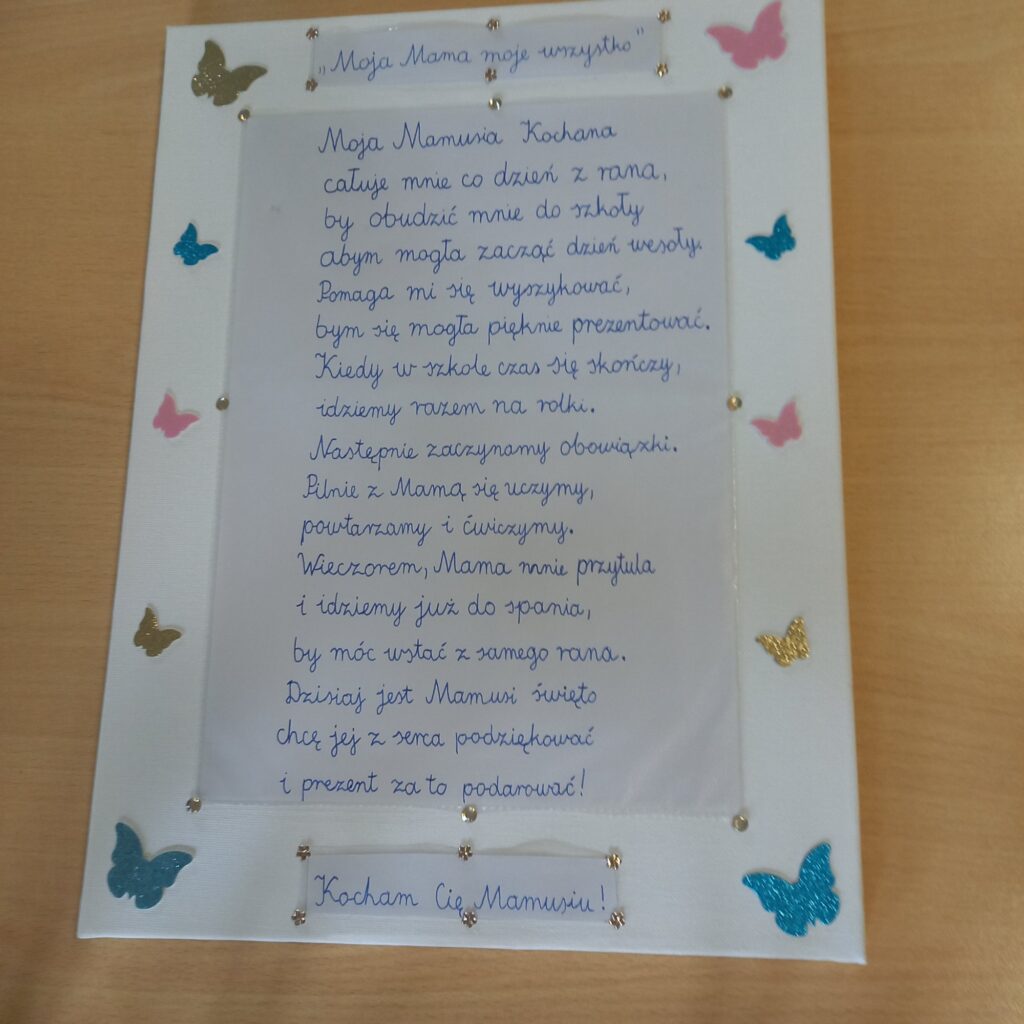 „Moja Mama moje wszystko"
Moja Mamusia Kochana
całuje mnie co dzień z rana,
by obudzić mnie do szkoły
abym mogła zacząć dzień wesoły.
Pomaga mi się wyszykować,
bym się mogła pięknie prezentować.
Kiedy w szkole czas się skończy,
idziemy razem na rolki.
Następnie zaczynamy obowiązki.
Pilnie z Mamą się uczymy,
powtarzamy i ćwiczymy.
Wieczorem, Mama mnie przytula
i idziemy już do spania,
by móc wstać z samego rana.
Dzisiaj jest Mamusi święto
chcę jej z serca podziękować
i prezent za to podarować!
Kocham Cię Mamusiu!